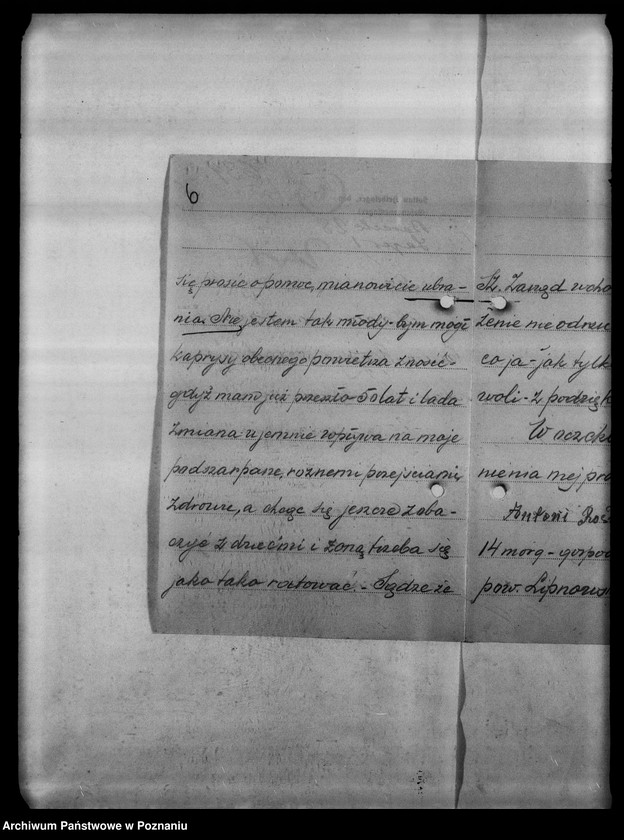 6
się prosić o pomoc, mianowicie ubra-
nia. Nie jestem tak młody - bym mógł
kaprysy obecnego powietrza znosić -
gdyż mam już przeszło 50 lat i lada
zmiana ujemnie wpływa na moje
podszarpane, roznemi przejściami,
zdrowie, a chcąc się jeszcze zoba-
czyć z dziećmi i żoną, trzeba się
jako tako ratować. - Sądzę że
Sz. Zarząd wcho
żenie nie odrzu
co ja - jak tylk
woli - z podzięk
W oczeki
nienia mej pro
Antoni
14 morg - gospod
pow. Lipnows
Archiwum Państwowe w Poznaniu